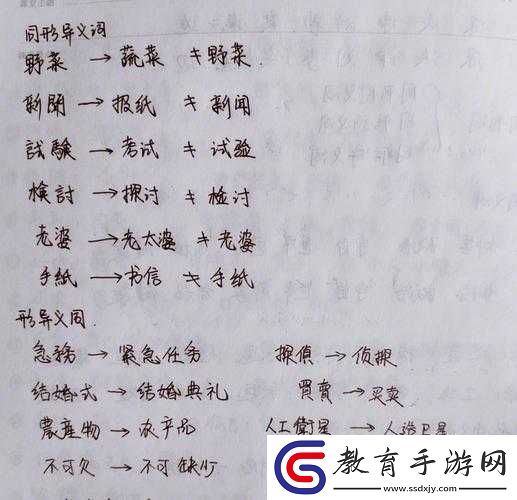 同形异义词
野菜 → 蔬菜 ≠ 野菜.
新聞 → 报纸 ≠ 新闻
試験 → 考试 ≠ 试验
検討 → 探讨 ≠ 检讨
老婆 → 老太婆 ≠ 老婆
手紙 → 书信 ≠ 手纸
形异义同.
急務 → 紧急任务 探偵 → 侦探
结婚式 → 结婚典礼 買賣 → 买卖
農産物 → 农产品 人工衛星 → 人造卫星
不可欠 → 不可缺少
教育手游网
www.ssdxjy.com